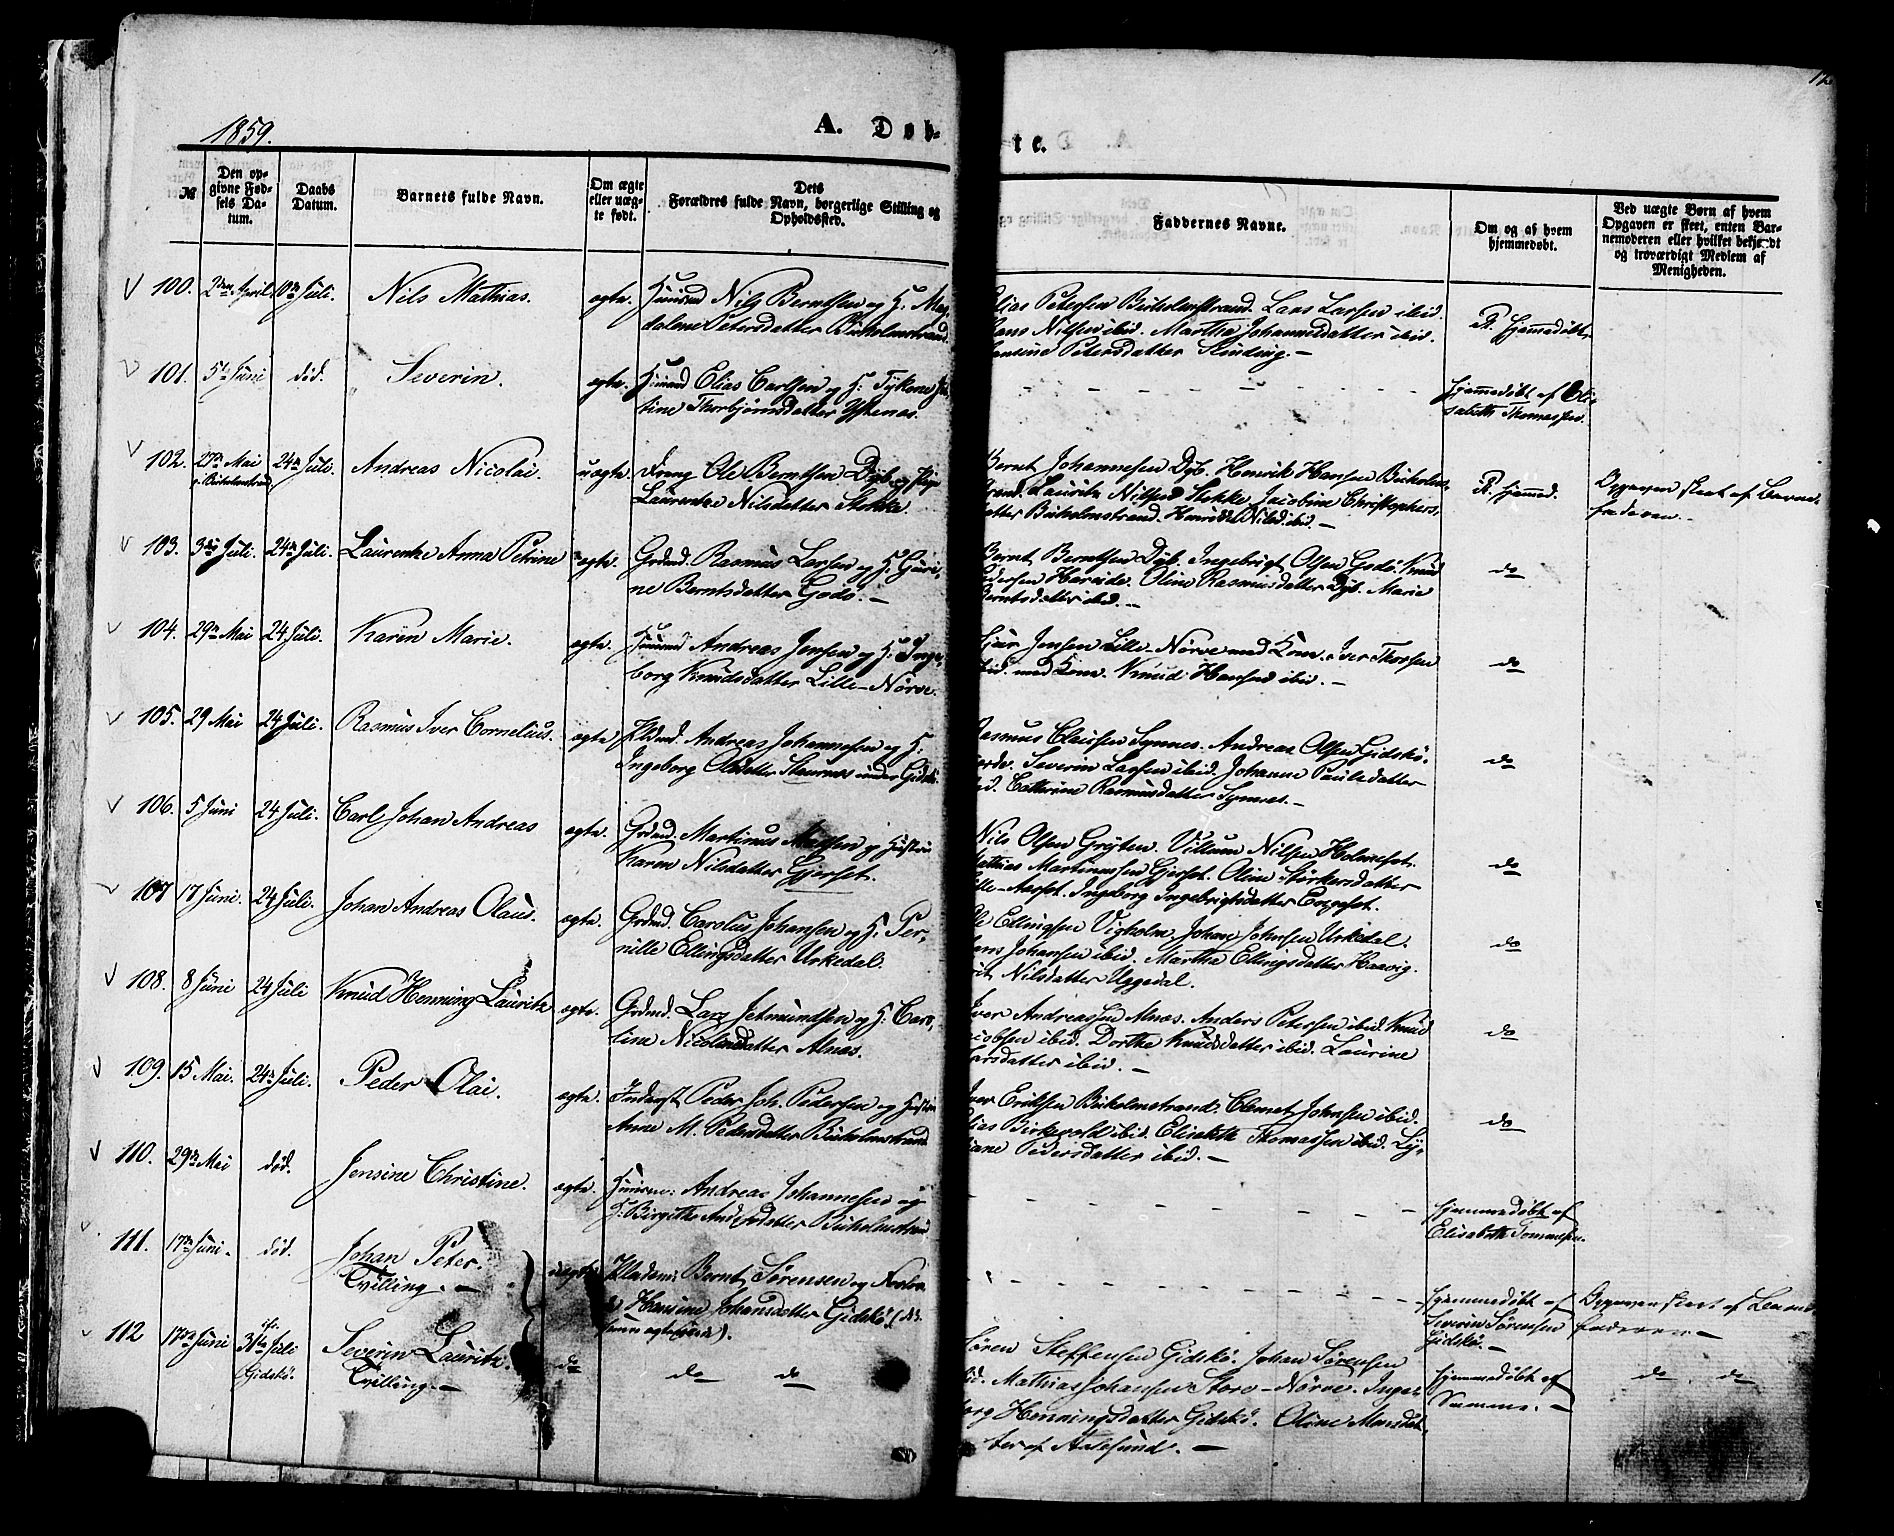 1859.
A. Døb-
te.
№
Den op-
givne Fød-
sels Da-
tum.
Daabs
Datum.
Barnets fulde Navn.
Om ægte
eller uæg-
te født.
Dets
Forældres fulde Navn, borgerlige Stilling og
Opholdssted.
Faddernes Navne.
Om og af hvem
hjemmedøbt.
Ved uægte Børn af hvem
Opgaven er skeet, enten Bar-
nemoderen eller hvilket bekjendt
og troværdigt Medlem af
Menigheden.
100. April 10de Juli. Nils Mathias. ægte. Nils Berntsen og H. Mag-
dalene Petersdatter Buholmstrand.
Elias Petersen Buholmstrand. Lars Larsen ibid.
Hans Nilsen ibid. Martha Johannesdatter ibid.
Petersdatter
R. hjemmedøbt.
101. 5te Juni død. Severin. ægte. Elias Carlsen og H:
Thorbjørnsdatter
hjemmedøbt af Eli-
sabeth Thomassen.
102. 27de Mai 24de Juli. Andreas Nicolai. uægte. Dreng Ole Berntsen Dyb og Pige
i Buholmstrand
Laurentze Nilsdatter Stokke.
Bernt Johannesen Dyb. Henrik Hansen Buholm-
strand. Lauritz Nilsen Stokke Jacobine Christophers-
datter Buholmstrand. ibid. —
R. hjemmed.
Opgaven skeet af Barne-
faderen. —
103. 3die Juli. 24de Juli. Laurentze Anna Petrine ægte. Grdmd. Rasmus Larsen og H.
Berntsdatter Godø. —
Bernt Berntsen Dyb. Ingebrigt Olsen Godø. Knud
Pedersen Hareide. Oline Rasmusdatter Dyb. Marie
Berntsdatter ibid. —
do
104. 29de Mai 24 Juli. Karen Marie. ægte. Andreas Jensen og H. Inge-
borg Knudsdatter Lille-Nørve.
Jensen Lille-Nørve med Kone. Iver
ibid. med Kone. Knud Hansen ibid. —
do
105. 29 Mai 24 Juli. Rasmus Iver Cornelius. ægte Pldmd. Andreas Johannesen og H:
Ingeborg Olsdatter Staurnes under Gidskø
Rasmus Claussen Synnes. Andreas Olsen Gidskø-
Severin Larsen ibid. Johanne Paulsdatter
ibid. Rasmusdatter Synnes. —
do
106. 5 Juni 24 Juli. Carl Johan Andreas ægte. Grdmd. Martinus og Hustru
Karen Nilsdatter Gjerset.
Nils Olsen Gryten. Villum Nilsen Holmeset.
Mathias Martinussen Gjerset. Oline
Lille-Aarset. Ingeborg Ingebrigtsdatter
do
107 17 Juni. 24 Juli. Johan Andreas Olaus. ægte. Grdmd. Carolus Johansen og H. Per-
nille Ellingsdatter Urkedal.
Ole Ellingsen Vigholm. Johan Johnsen Urkedal.
Johansen ibid. Martha Ellingsdatter Haavig.
Nilsdatter Uggedal.
do
108. 8 Juni 24 Juli Knud Henning Lauritz ægte. Grdmd. Lars Jetmundsen og H. Caro-
line Nicolaidatter Alnæs.
Iver Andreassen Alnæs. Anders Petersen ibid. Knud
Jacobsen ibid. Dorthe Knudsdatter ibid. Laurine
Larsdatter ibid. —
do
109. 15 Mai. 24de Juli. Peder Olai. ægte. Inderst Peder Joh. Pedersen og Hustru
Anne M. Pedersdatter Buholmstrand
Iver Eriksen Buholmstrand. Clemet Johnsen ibid.
Elias Birkevold ibid. Elisabeth Thomassen ibid.
Pedersdatter ibid. —
do
110. 29de Mai død. Jensine Christine. ægte. Andreas Johannesen og
H: Birgithe Buholmstrand
hjemmedøbt af
Elisabeth Tomassen.
111. 17de Juni. død. Johan Peter.
Tvilling. — uægte Bernt Sørensen og
Hansine Johansdatter Gidskø
hjemmedøbt af
Severin Sørensen
Gidskø. —
Opgaven skeet af Barne-
faderen —
112 17de Juni 31te Juli
Gidskø. Severin Lauritz.
Tvilling. — do do do
Søren Steffensen Gidskø. Johan Sørensen
ibid. Mathias Johansen Store-Nørve. Inge-
borg Henningsdatter Gidskø. Oline Monsdat-
ter af Aalesund. —
hjemmedøbt af
Samme. —
do. do